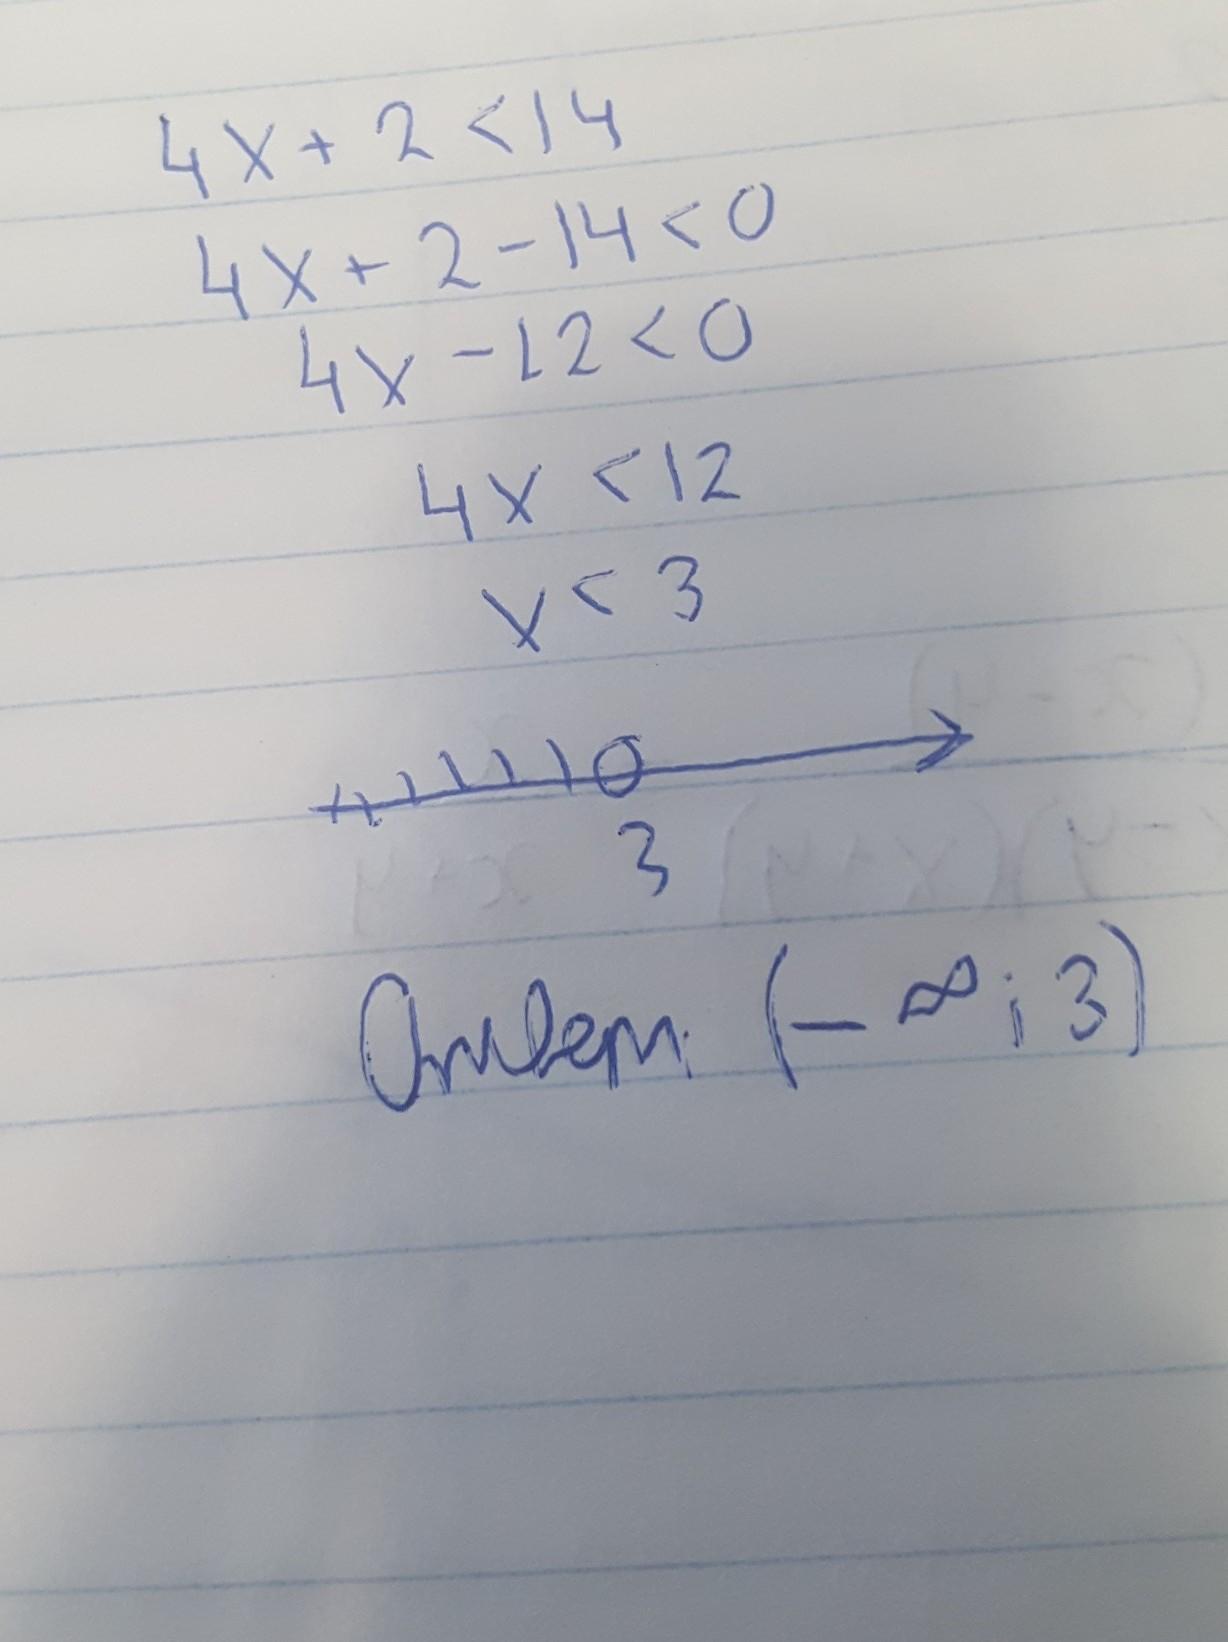 4x + 2 < 14
4x + 2 - 14 < 0
4x - 12 < 0
4x < 12
x < 3
3
Ответ: (-∞; 3)